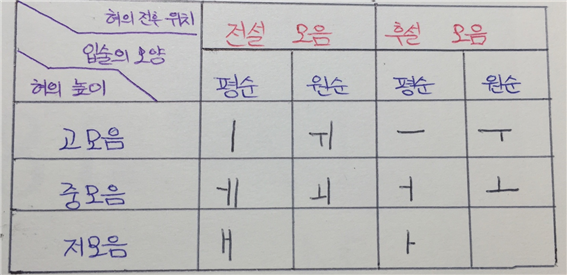 혀의 전후 위치 전설 모음 후설 모음
입술의 모양
혀의 높이 평순 원순 평순 원순
고모음 ㅣ ㅟ ㅡ ㅜ
중모음 ㅔ ㅚ ㅓ ㅗ
저모음 ㅐ ㅏ